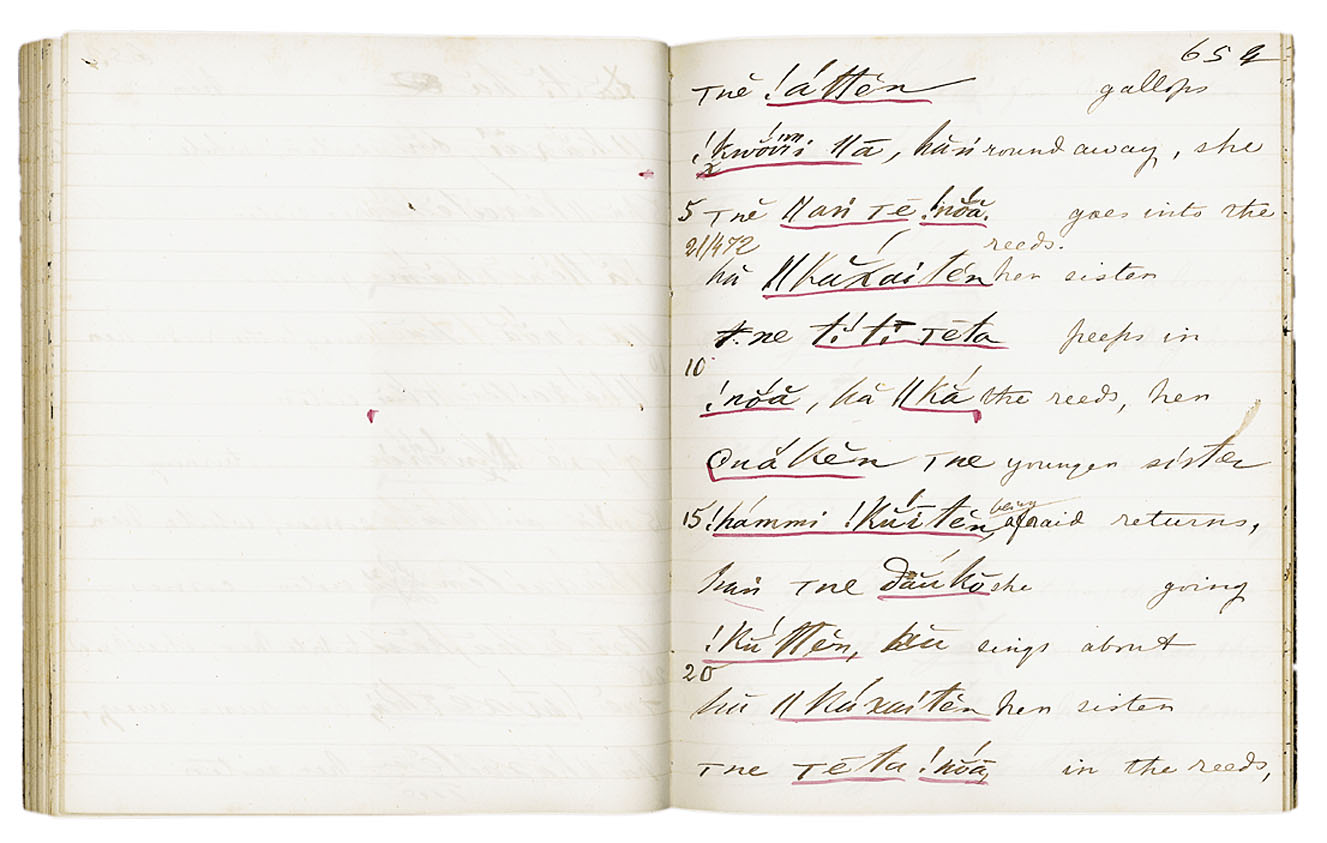 654
Tnĕ !áttĕn gallops
!kwómmi ǁā, hăń round away, she
5 Tnĕ ǁań Tē !nŏă. goes into the
21/472 reeds.
hŭ ǁkŭxáitĕn her sister
Tne tí ti Tēta peeps in
10
!nŏă, hă ǁkă the reeds, her
ʘnăkĕn Tne younger sister
15 !hámmi !kŭítĕn, being afraid returns,
hań Tne dăúkŏ she going
!kŭ́ttĕn, hŭ sings about
20
hŭ ǁkŭ́xaitĕn her sister
Tne Tēta !nŏā, in the reeds,